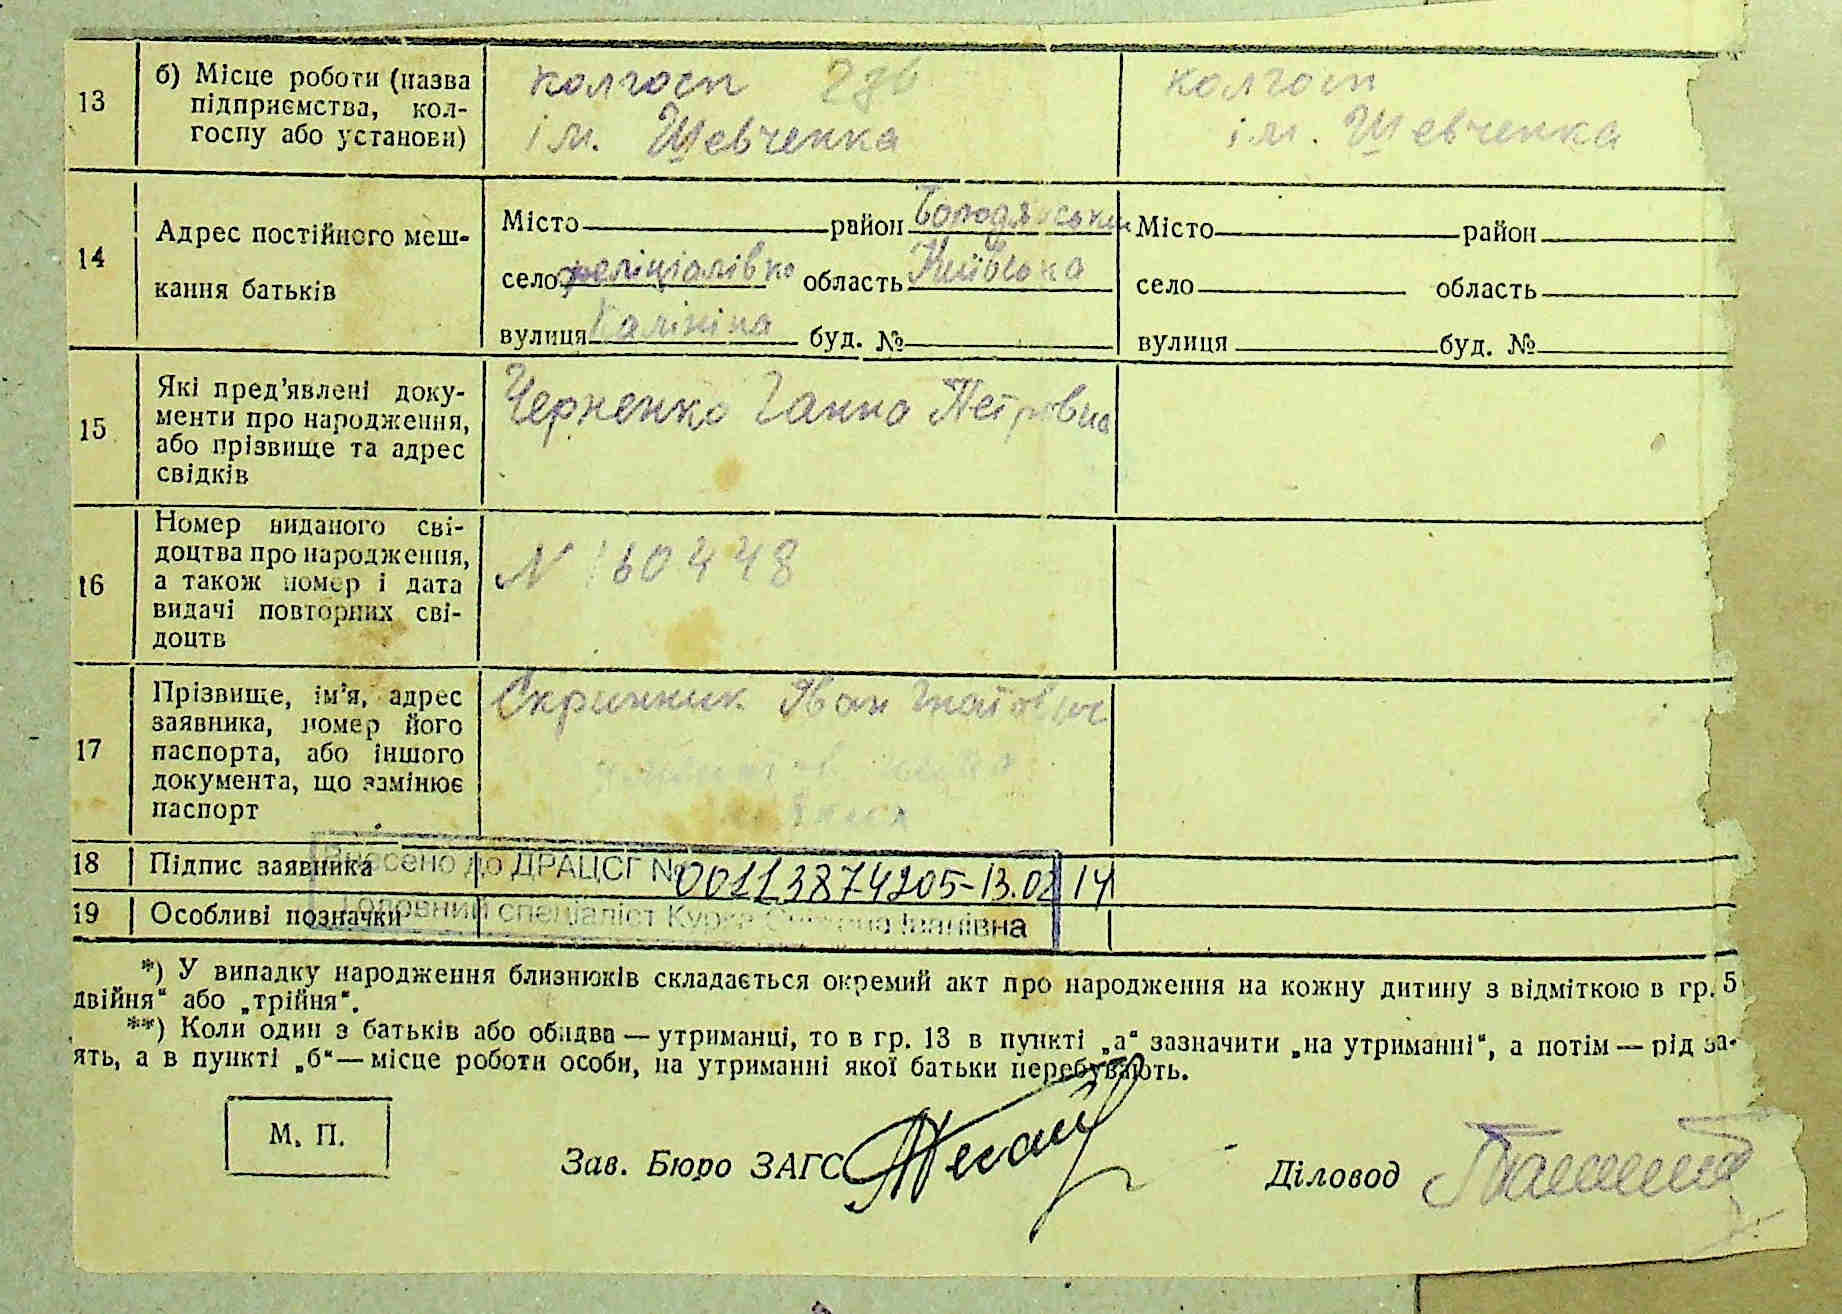 13
б) Місце роботи (назва
підприємства, кол-
госпу або установи)
колгосп
ім. Шевченка
колгосп
ім. Шевченка
14
Адрес постійного меш-
кання батьків
Місто район Бородянський
село область Київська
вулиця Калініна буд. №
Місто район
село область
вулиця буд. №
15
Які пред'явлені доку-
менти про народження,
або прізвище та адрес
свідків
Черненко Ганна Петровна
16
Номер виданого сві-
доцтва про народження,
а також номер і дата
видачі повторних сві-
доцтв
N 160448
17
Прізвище, ім'я, адрес
заявника, номер його
паспорта, або іншого
документа, що замінює
паспорт
Скринник Іван Гнатович
18 Підпис заявника
Внесено до ДРАЦСГ № 00113874205-13.02 14
19 Особливі позначки
Головний спеціаліст Іванівна
*) У випадку народження близнюків складається окремий акт про народження на кожну дитину з відміткою в гр. 5
двійня" або „трійня".
**) Коли один з батьків або обидва — утриманці, то в гр. 13 в пункті „а" зазначити „на утриманні", а потім — рід за-
ять, а в пункті „б" — місце роботи особи, на утриманні якої батьки перебувають.
М. П.
Зав. Бюро ЗАГС
Діловод